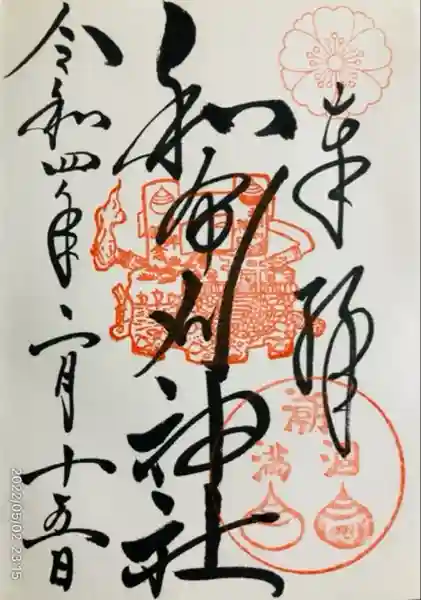 奉拝
和布刈神社
令和四年二月十五日
潮
涸
満
2022/05/02 23:15